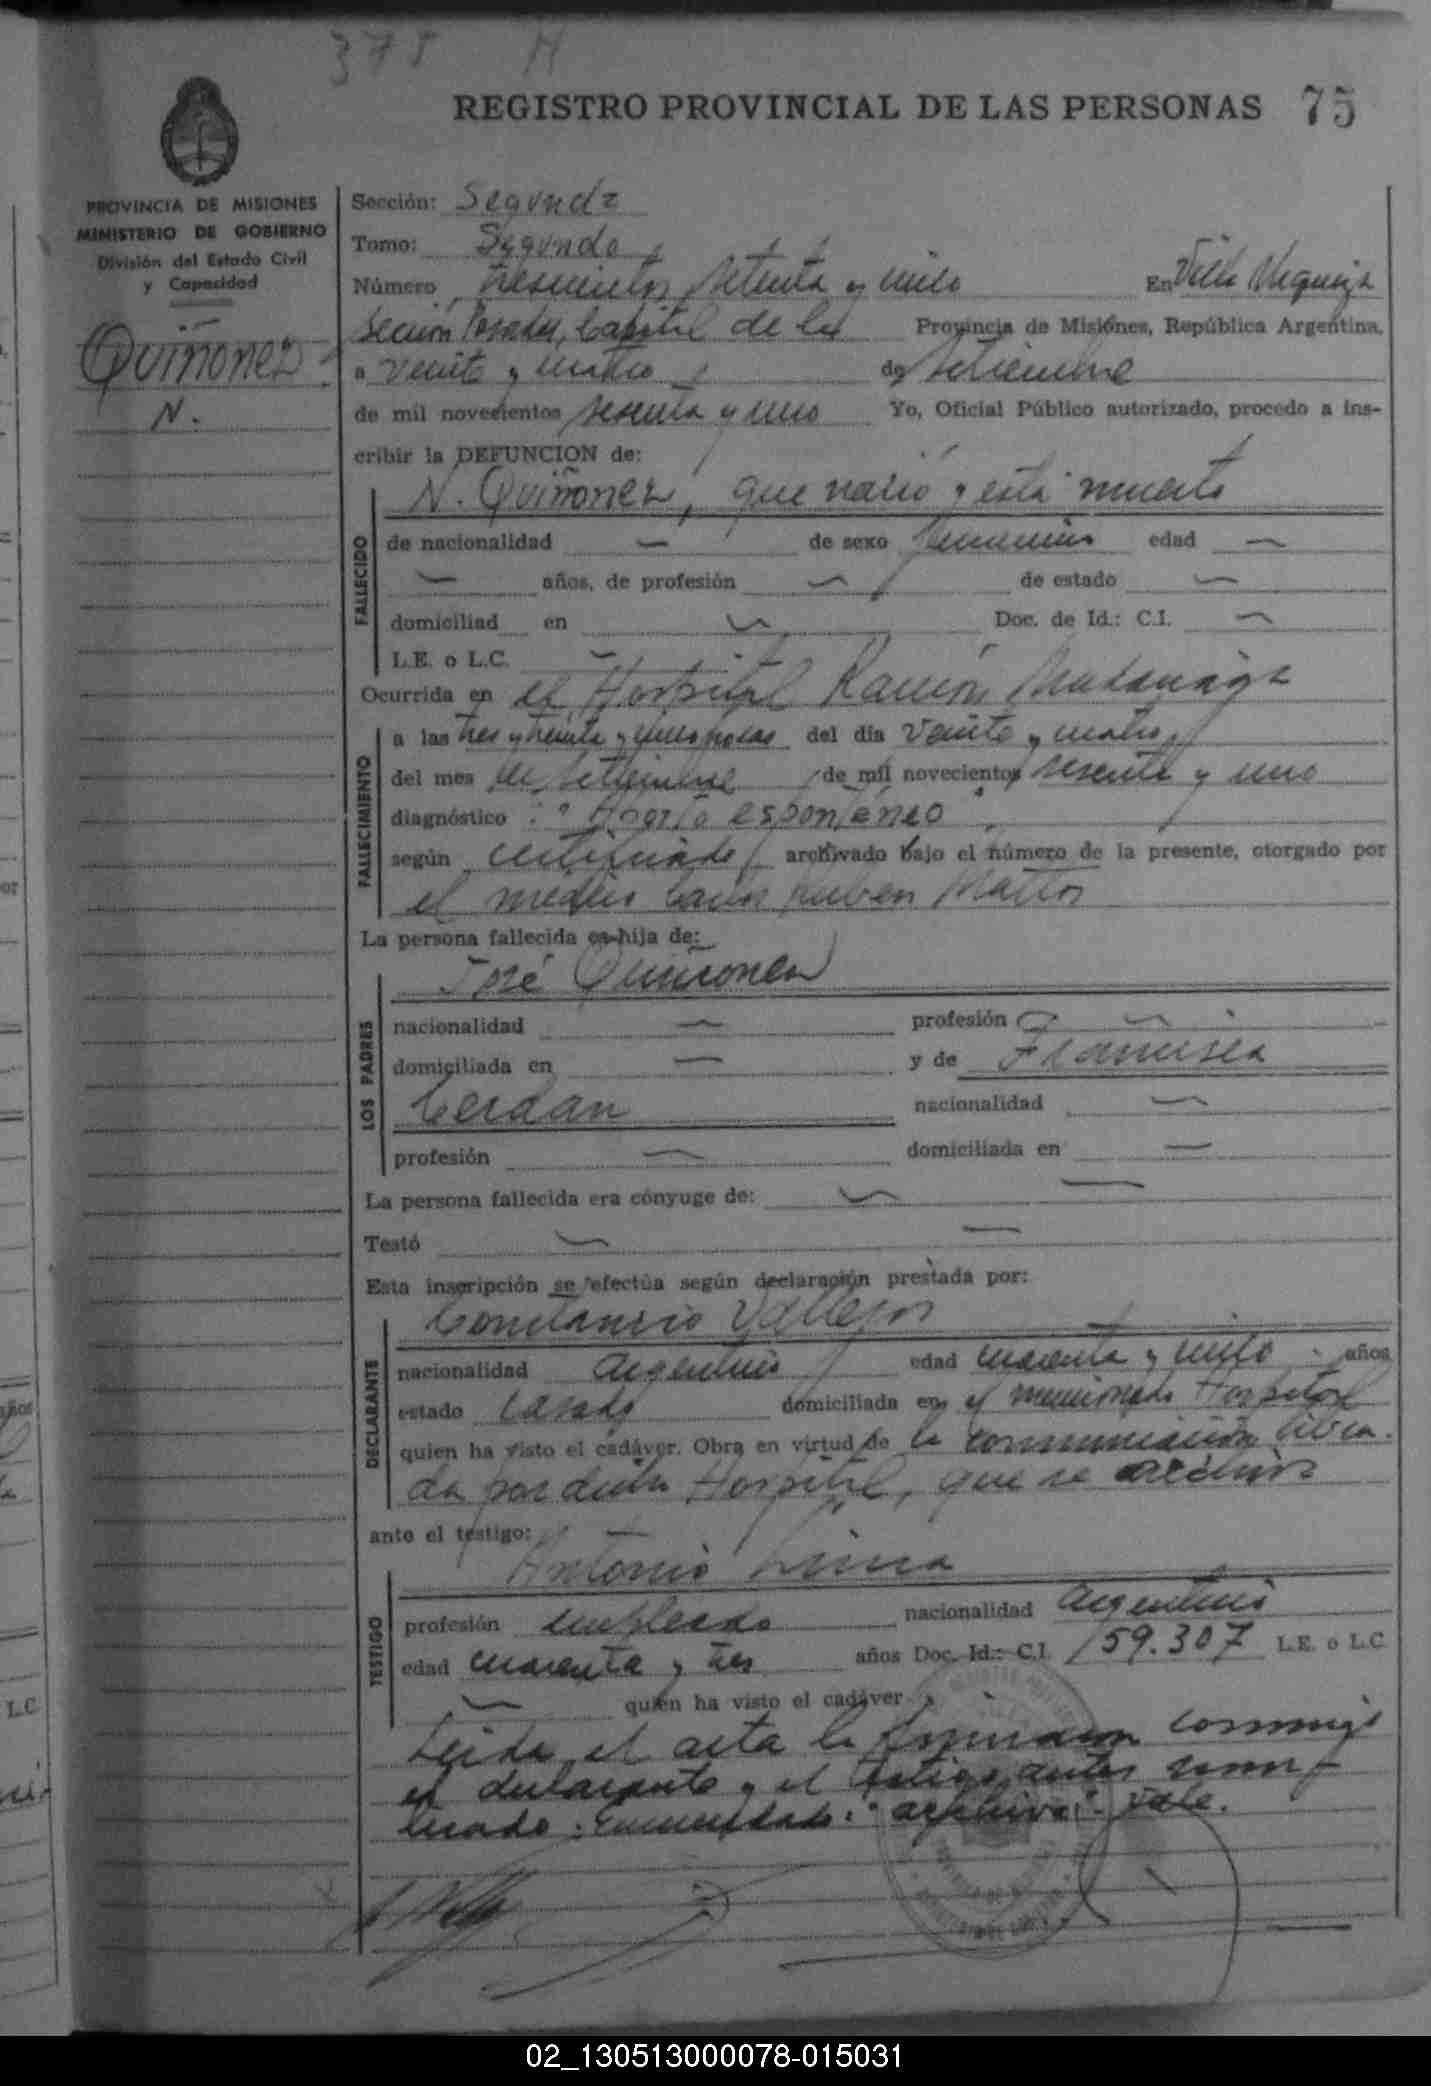 378 A
REGISTRO PROVINCIAL DE LAS PERSONAS 75
PROVINCIA DE MISIONES
MINISTERIO DE GOBIERNO
División del Estado Civil
y Capacidad
Quiñonez
N.
Sección: Segunda
Tomo: Segundo
Número trescientos setenta y ocho En Villa Urquiza
Sección Posadas, Capital de la Provincia de Misiones, República Argentina,
a veinte y cuatro de setiembre
de mil novecientos sesenta y uno Yo, Oficial Público autorizado, procedo a ins-
cribir la DEFUNCION de:
N. Quiñonez, que nació y está muerta
FALLECIDO
de nacionalidad — de sexo femenino edad —
— años, de profesión — de estado —
domiciliad en — Doc. de Id.: C.I. —
L.E. o L.C. —
Ocurrida en el Hospital Ramón Madariaga
FALLECIMIENTO
a las tres y treinta y horas del día veinte y cuatro
del mes de setiembre de mil novecientos sesenta y uno
diagnóstico: "Aborto espontáneo"
según certificado archivado bajo el número de la presente, otorgado por
el médico Carlos Ruben Mattos
La persona fallecida es hija de:
José Quiñonez
LOS PADRES
nacionalidad — profesión —
domiciliada en — y de Francisca
Cerdan nacionalidad —
profesión — domiciliada en —
La persona fallecida era cónyuge de: — —
Testó — —
Esta inscripción se efectúa según declaración prestada por:
Constancio Vallejos
DECLARANTE
nacionalidad Argentino edad cuarenta y ocho años
estado casado domiciliada en el mencionado Hospital
quien ha visto el cadáver. Obra en virtud de la comunicación libra-
da por dicho Hospital, que se archiva
ante el testigo:
Antonio
TESTIGO
profesión empleado nacionalidad Argentino
edad cuarenta y tres años Doc. Id.: C.I. 159.307 L.E. o L.C.
— quien ha visto el cadáver
Leida el acta la firmaron conmigo
el declarante y el testigo antes nom-
brado. Enmendado: "archiva". Vale.
02_130513000078-015031